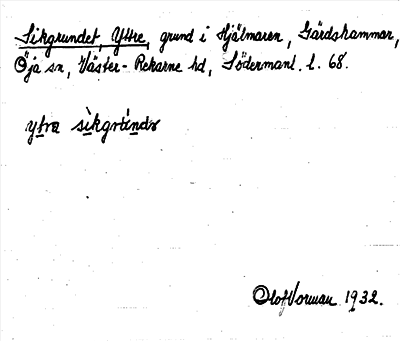 Sikgrundet, Yttre, grund i Hjälmaren, Gärdshammar,
Öja sn, Väster-Rekarne hd, Södermanl. l. 68.
ytra sìkgrúndə
Olof Vorman 1932.